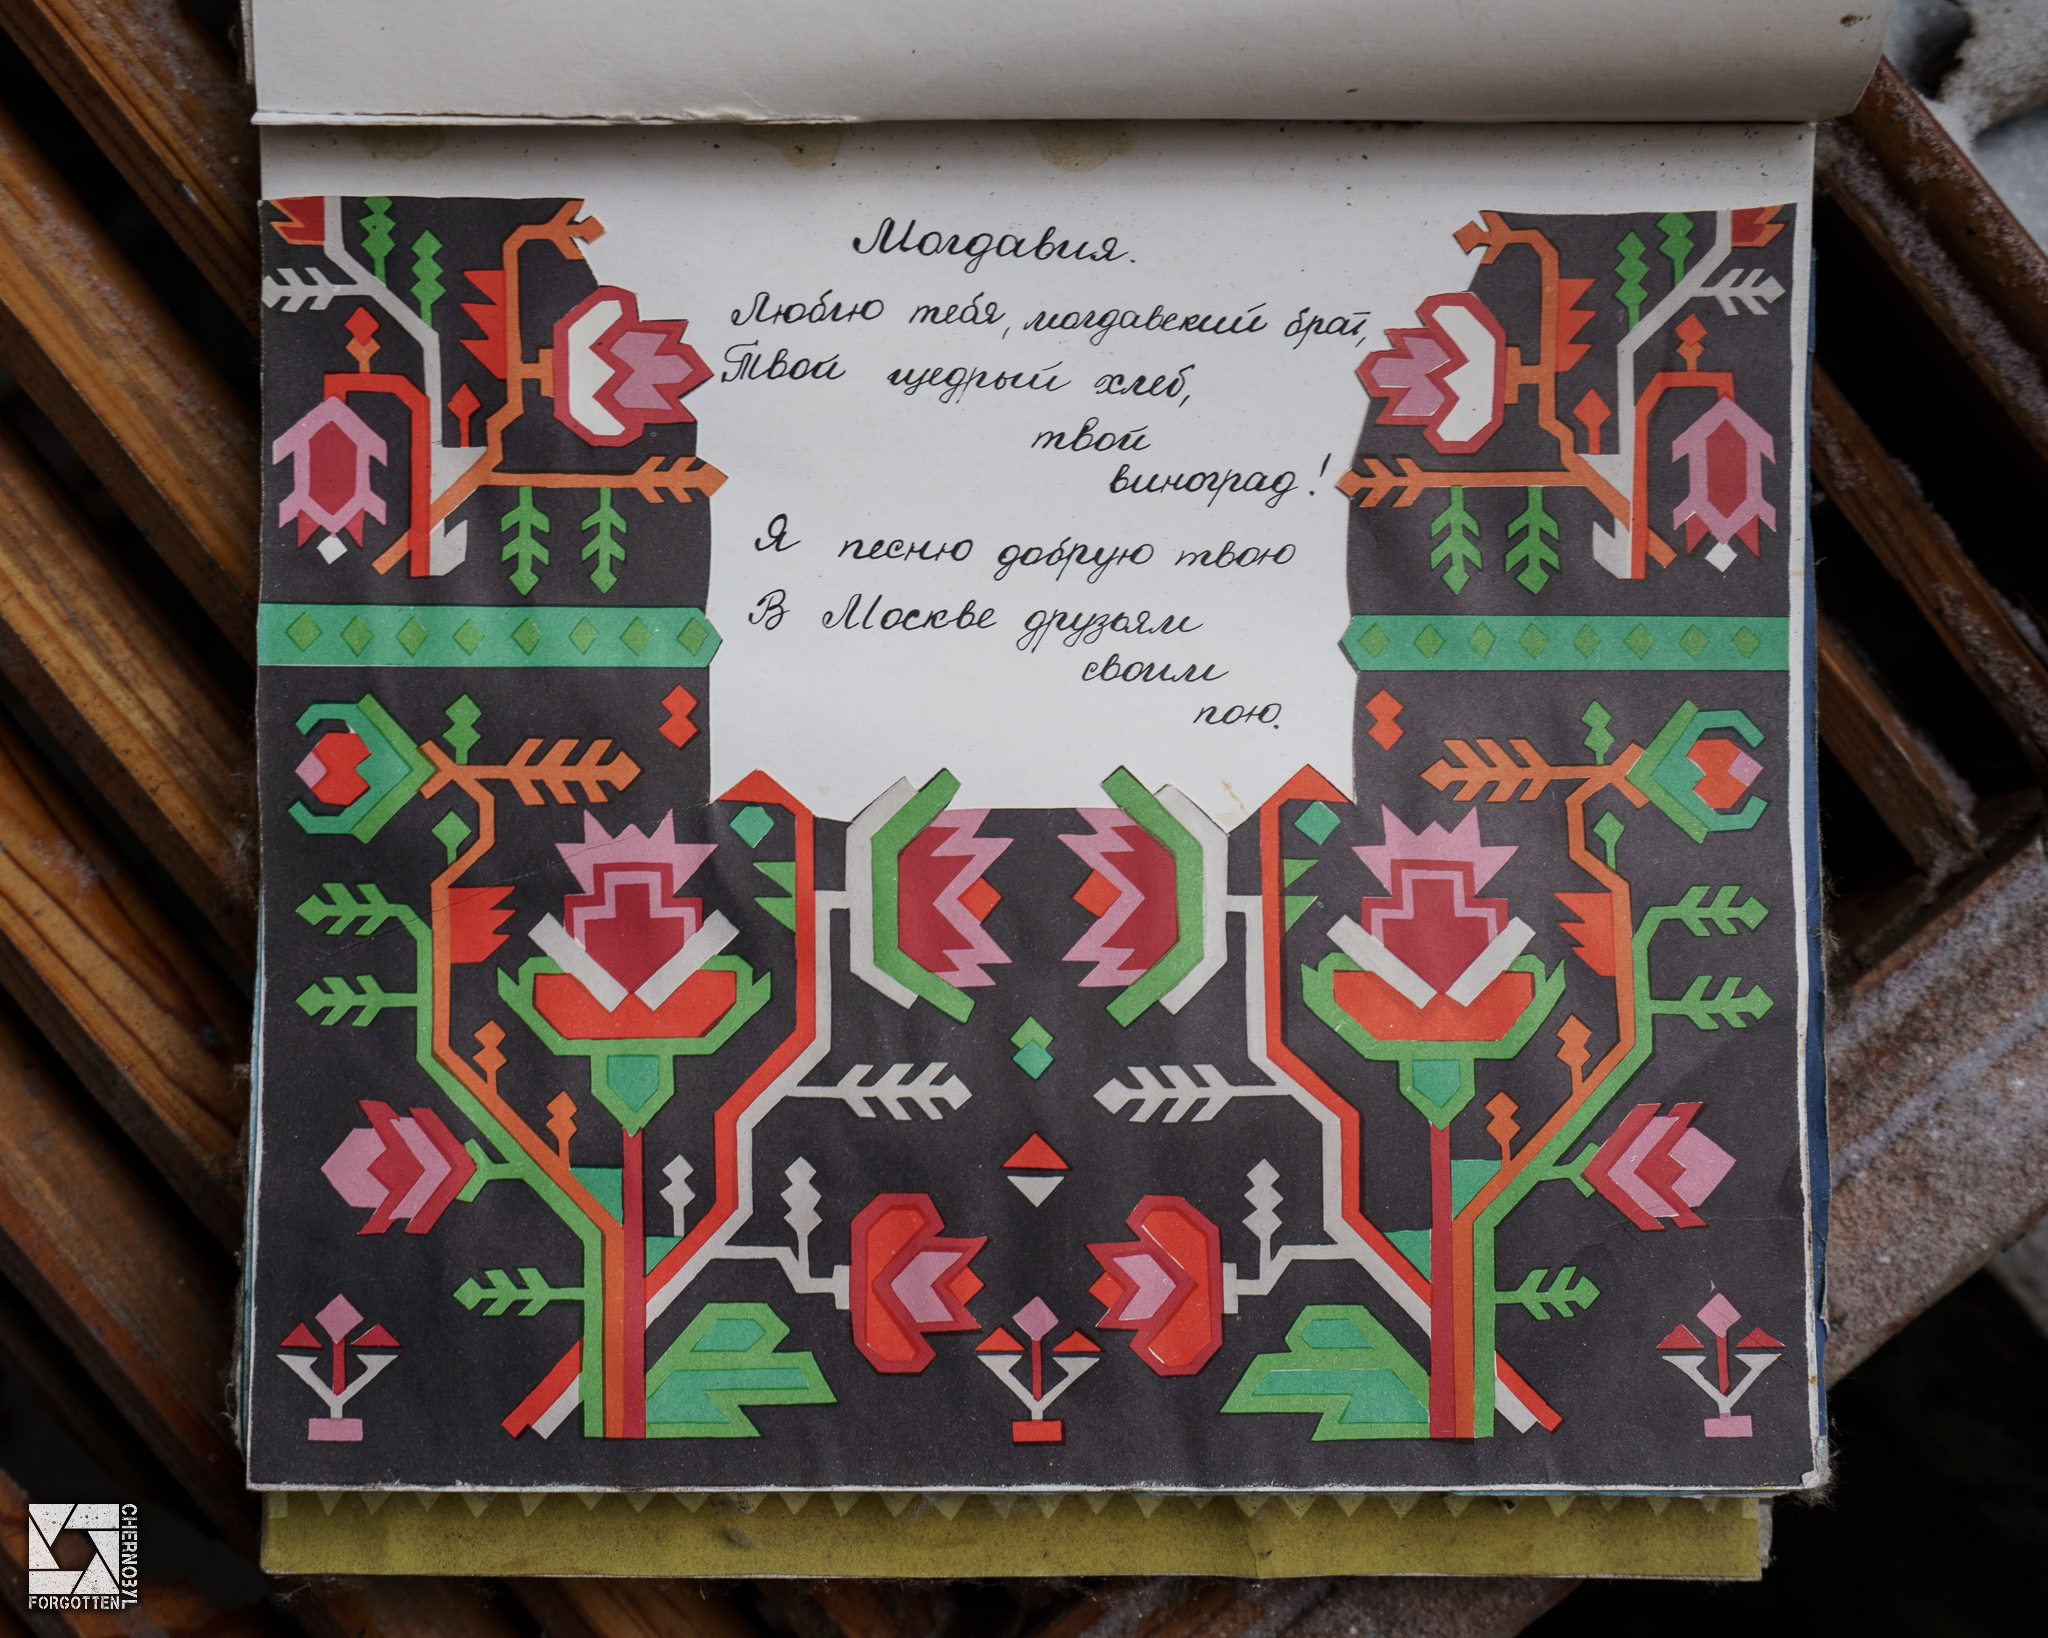 Молдавия.
Люблю тебя, молдавский брат,
Твой щедрый хлеб,
твой
виноград!
Я песню добрую твою
В Москве друзьям
своим
пою.
CHERNOBYL
FORGOTTEN